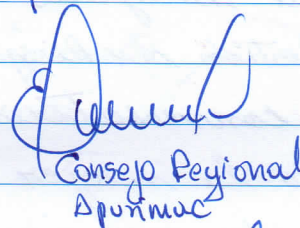 Consejo Regional
Apurimac